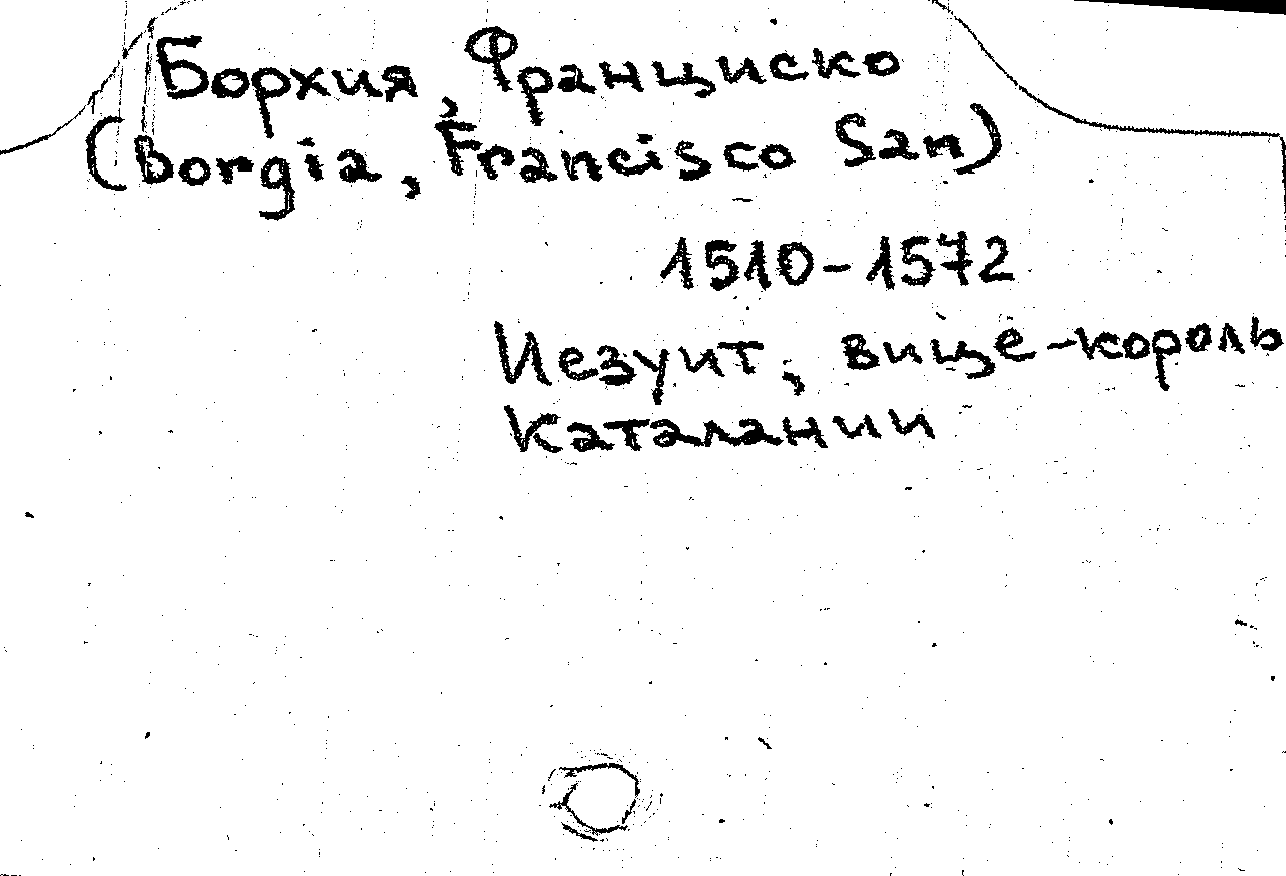 Борхия, Франциско
(Borgia, Francisco San)
1510-1572
Иезуит, вище-король
Каталании